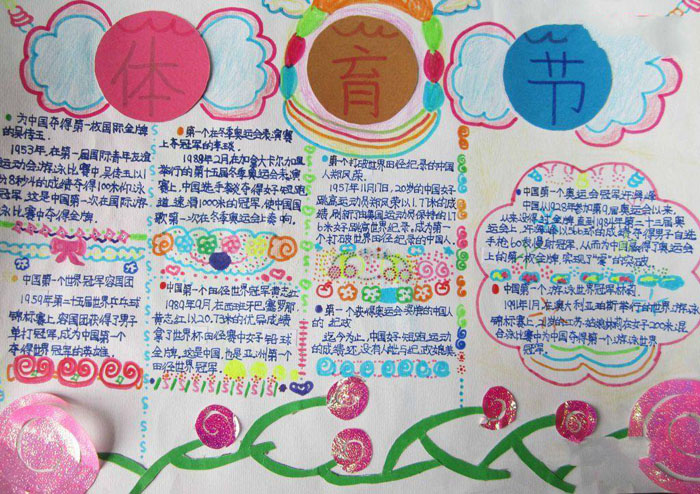 体育节
为中国夺得第一枚国际金牌
的吴传玉
1953年,在第一届国际青年友谊
运动会游泳比赛中,吴传玉以1
分8秒4的成绩夺得100米仰泳
冠军,这是中国第一次在国际游
泳比赛中夺得金牌.
中国第一个世界冠军容国团
1959年第二十五届世界乒乓球
锦标赛上,容国团获得了男子
单打冠军,成为中国第一个
夺得世界冠军的英雄.
第一个在冬季奥运会表演赛
上夺冠军的李琰
1988年2月在加拿大卡尔加里
举行的第十五届冬季奥运会表演
赛上,中国选手李琰夺得女子短跑
道速滑1000米的冠军,使中国国
歌第一次在冬季奥运会上奏响.
中国第一个田径世界冠军黄志红
1989年9月,在西班牙巴塞罗那,
黄志红以20.73米的优异成绩
拿了世界杯田径赛中女子铅球
金牌,这是中国,也是亚洲第一个
田径世界冠军.
第一个打破世界田径纪录的中国
人郑凤荣
1957年11月17日,20岁的中国女子
跳高运动员郑凤荣以1.77米的成
绩,刷新了由美国运动员保持的1.7
6米女子跳高世界纪录,成为第一
个打破世界田径纪录的中国人.
第一个获得奥运会奖牌的中国人
的纪政
迄今为止,中国女子短跑运动
的成绩还没有人能与纪政媲美
中国第一个奥运会冠军许海峰
中国从1932年参加第10届奥运会以来,
从未没得过金牌,直至1984年第二十三届奥
运会上,许海峰以566环的成绩夺得男子自选
手枪60发慢射冠军,从而为中国赢得了奥运会
上的第一枚金牌,实现了"零"的突破.
中国第一个游泳世界冠军林莉
1991年1月,在澳大利亚珀斯举行的世界游泳
锦标赛上,21岁的江苏姑娘林莉在女子200米混
合泳比赛中为中国夺得第一个游泳世界
冠军.